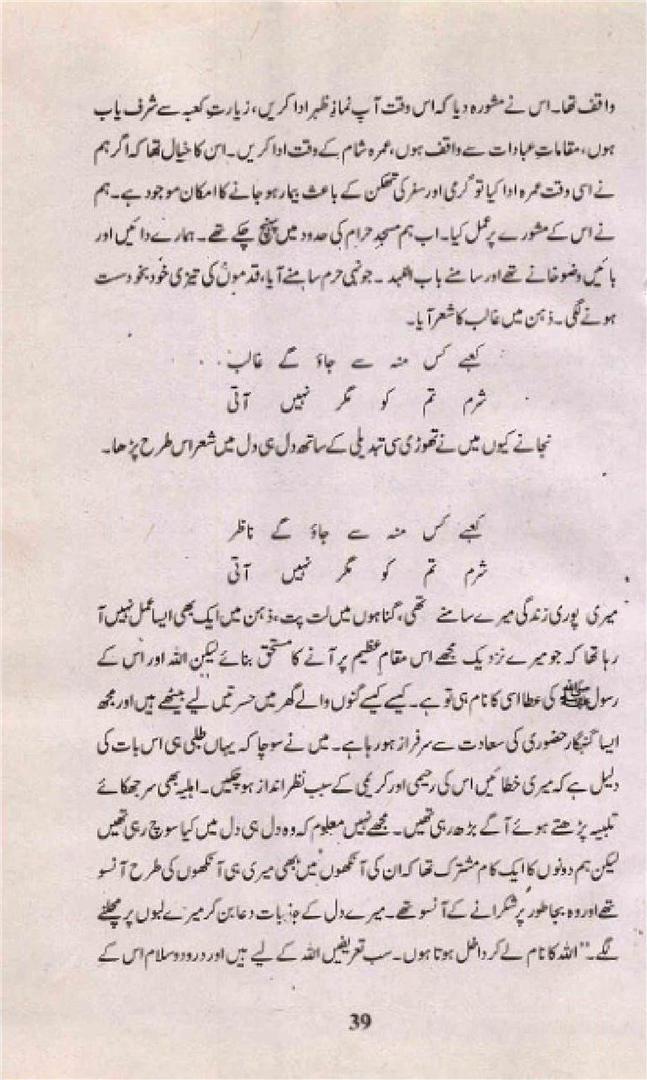 واقف تھا۔ اس نے مشورہ دیا کہ اس وقت آپ نمازِ ظہر ادا کریں، زیارتِ کعبہ سے شرف یاب
ہوں، مقاماتِ عبادات سے واقف ہوں، عمرہ شام کے وقت ادا کریں۔ اس کا خیال تھا کہ اگر ہم
نے اسی وقت عمرہ ادا کیا تو گرمی اور سفر کی تھکن کے باعث بیمار ہو جانے کا امکان موجود ہے۔ ہم
نے اس کے مشورے پر عمل کیا۔ اب ہم مسجدِ حرام کی حدود میں پہنچ چکے تھے۔ ہمارے دائیں اور
بائیں وضو خانے تھے اور سامنے باب الفہد۔ جونہی حرم سامنے آیا، قدموں کی تیزی خود بخود سست
ہونے لگی۔ ذہن میں غالب کا شعر آیا۔
کعبے کس منہ سے جاؤ گے غالب
شرم تم کو مگر نہیں آتی
نجانے کیوں میں نے تھوڑی سی تبدیلی کے ساتھ دل ہی دل میں شعر اس طرح پڑھا۔
کعبے کس منہ سے جاؤ گے ناظر
شرم تم کو مگر نہیں آتی
میری پوری زندگی میرے سامنے تھی، گناہوں میں لت پت، ذہن میں ایک بھی ایسا عمل نہیں آ
رہا تھا کہ جو میرے نزدیک مجھے اس مقامِ عظیم پر آنے کا مستحق بنائے لیکن اللہ اور اس کے
رسول ﷺ کی عطا اسی کا نام ہی تو ہے۔ کیسے کیسے گنوں والے گھر میں حسرتیں لیے بیٹھے ہیں اور مجھ
ایسا گنہگار حضوری کی سعادت سے سرفراز ہو رہا ہے۔ میں نے سوچا کہ یہاں طلبی ہی اس بات کی
دلیل ہے کہ میری خطائیں اس کی رحیمی اور کریمی کے سبب نظر انداز ہو چکیں۔ اہلیہ بھی سر جھکائے
تلبیہ پڑھتے ہوئے آگے بڑھ رہی تھیں۔ مجھے نہیں معلوم کہ وہ دل ہی دل میں کیا سوچ رہی تھیں
لیکن ہم دونوں کا ایک کام مشترک تھا کہ ان کی آنکھوں میں بھی میری ہی آنکھوں کی طرح آنسو
تھے اور وہ بجا طور پر شکرانے کے آنسو تھے۔ میرے دل کے جذبات دعا بن کر میرے لبوں پر مچلنے
لگے۔ "اللہ کا نام لے کر داخل ہوتا ہوں۔ سب تعریفیں اللہ کے لیے ہیں اور درود و سلام اس کے
39